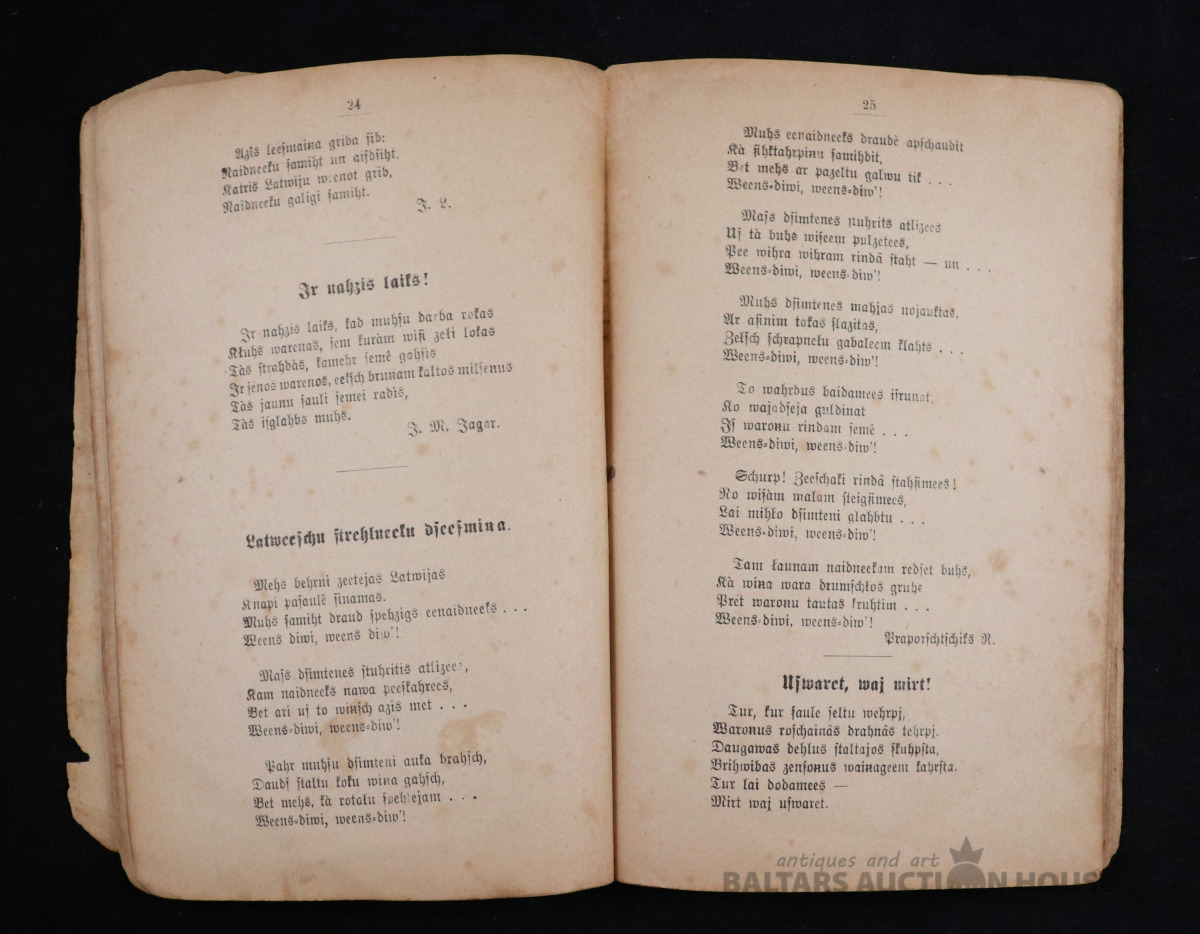 24
Azis leesmaina griba sib:
Naidneeku samiht un aisdsiht.
Katris Latwiju weenot grib,
Naidneeku galigi samiht.
J. L.
Ir nahzis laiks!
Ir nahzis laiks, kad muhsu darba rokas
Kłuhs warenas, sem kuràm wisi zeki lokas
Tàs strahdàs, kamehr semê gahsis
Ir senos warenos, eeksch brunam kaltos milsenus
Tàs jaunu sauli semei radis,
Tàs isglahbs muhs.
J. M. Jagar.
Latweeschu strehlneeku dseesmina.
Mehs behrni zeetejas Latwijas
Knapi pasaulê sinamas.
Muhs samiht draud spehzigs eenaidneeks . . .
Weens diwi, weens diw'!
Mass dsimtenes stuhritis atlizees,
Kam naidneeks nawa peeskahrees,
Bet ari us to winsch azis met . . .
Weens-diwi, weens-diw'!
Pahr muhsu dsimteni auka brahsch,
Dauds staltu koku wina gahsch,
Bet mehs, kà rotalu spehlejam . . .
Weens-diwi, weens-diw'!
25
Muhs eenaidneeks draudê apschaudit
Kà sihktahrpinu samihdit,
Bet mehs ar pazeltu galwu tik . . .
Weens-diwi, weens-diw'!
Mass dsimtenes stuhrits atlizees
Us tà buhs wiseem pulzetees,
Pee wihra wihram rindâ staht — un . . .
Weens-diwi, weens-diw'!
Muhs dsimtenes mahjas nojauktas,
Ar asinim takas slazitas,
Zelsch schrapnelu gabaleem klahts . . .
Weens-diwi, weens-diw'!
To wahrdus baidamees isrunat,
Ko wajadseja guldinat
Is waronu rindam semê . . .
Weens-diwi, weens-diw'!
Schurp! Zeeschaki rindâ stahsimees!
No wisàm malam steigsimees,
Lai mihło dsimteni glahbtu . . .
Weens-diwi, weens-diw'!
Tam launam naidneekam redset buhs,
Kà wina wara drumschłos gruhs
Pret waronu tautas kruhtim . . .
Weens-diwi, weens-diw'!
Praporschtschiks R.
Uswaret, waj mirt!
Tur, kur saule seltu wehrpj,
Waronus roschainâs drahnâs tehrpj.
Daugawas dehlus staltajos skuhpsta,
Brihwibas zensonus wainageem kahrsta.
Tur lai dodamees —
Mirt waj uswaret.
antiques and art
BALTARS AUCTION HOUS